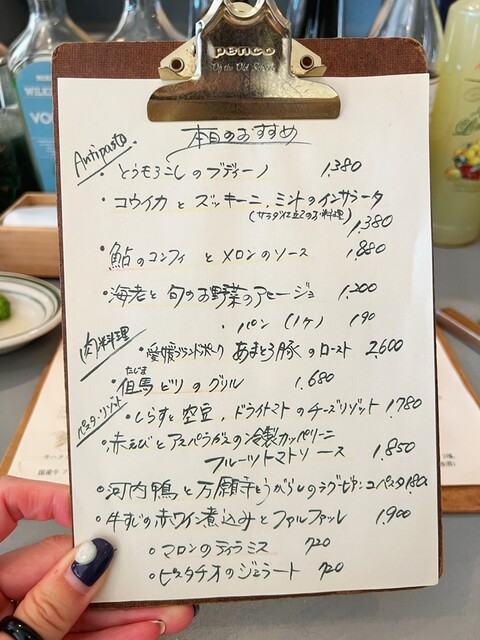 penco
本日のおすすめ
Antipasto
・とうもろこしのブディーノ 1,380
・コウイカとズッキーニ、ミントのインサラータ
(サラダ仕立てのお料理)
1,380
・鮎のコンフィとメロンのソース 1,880
・海老と旬のお野菜のアヒージョ 1,200
・パン(1ヶ) 190
肉料理
・愛媛ブランドポークあまとろ豚のロースト 2,600
たじま
・但馬どりのグリル 1,680
パスタ・リゾット
・しらすと空豆、ドライトマトのチーズリゾット 1,780
・赤えびとアスパラガスの冷製カッペリーニ
フルーツトマトソース 1,850
・河内鴨と万願寺とうがらしのラグビアンコパスタ 1,80
・牛すじの赤ワイン煮込みとファルファッレ 1,900
・マロンのティラミス 720
・ピスタチオのジェラート 720